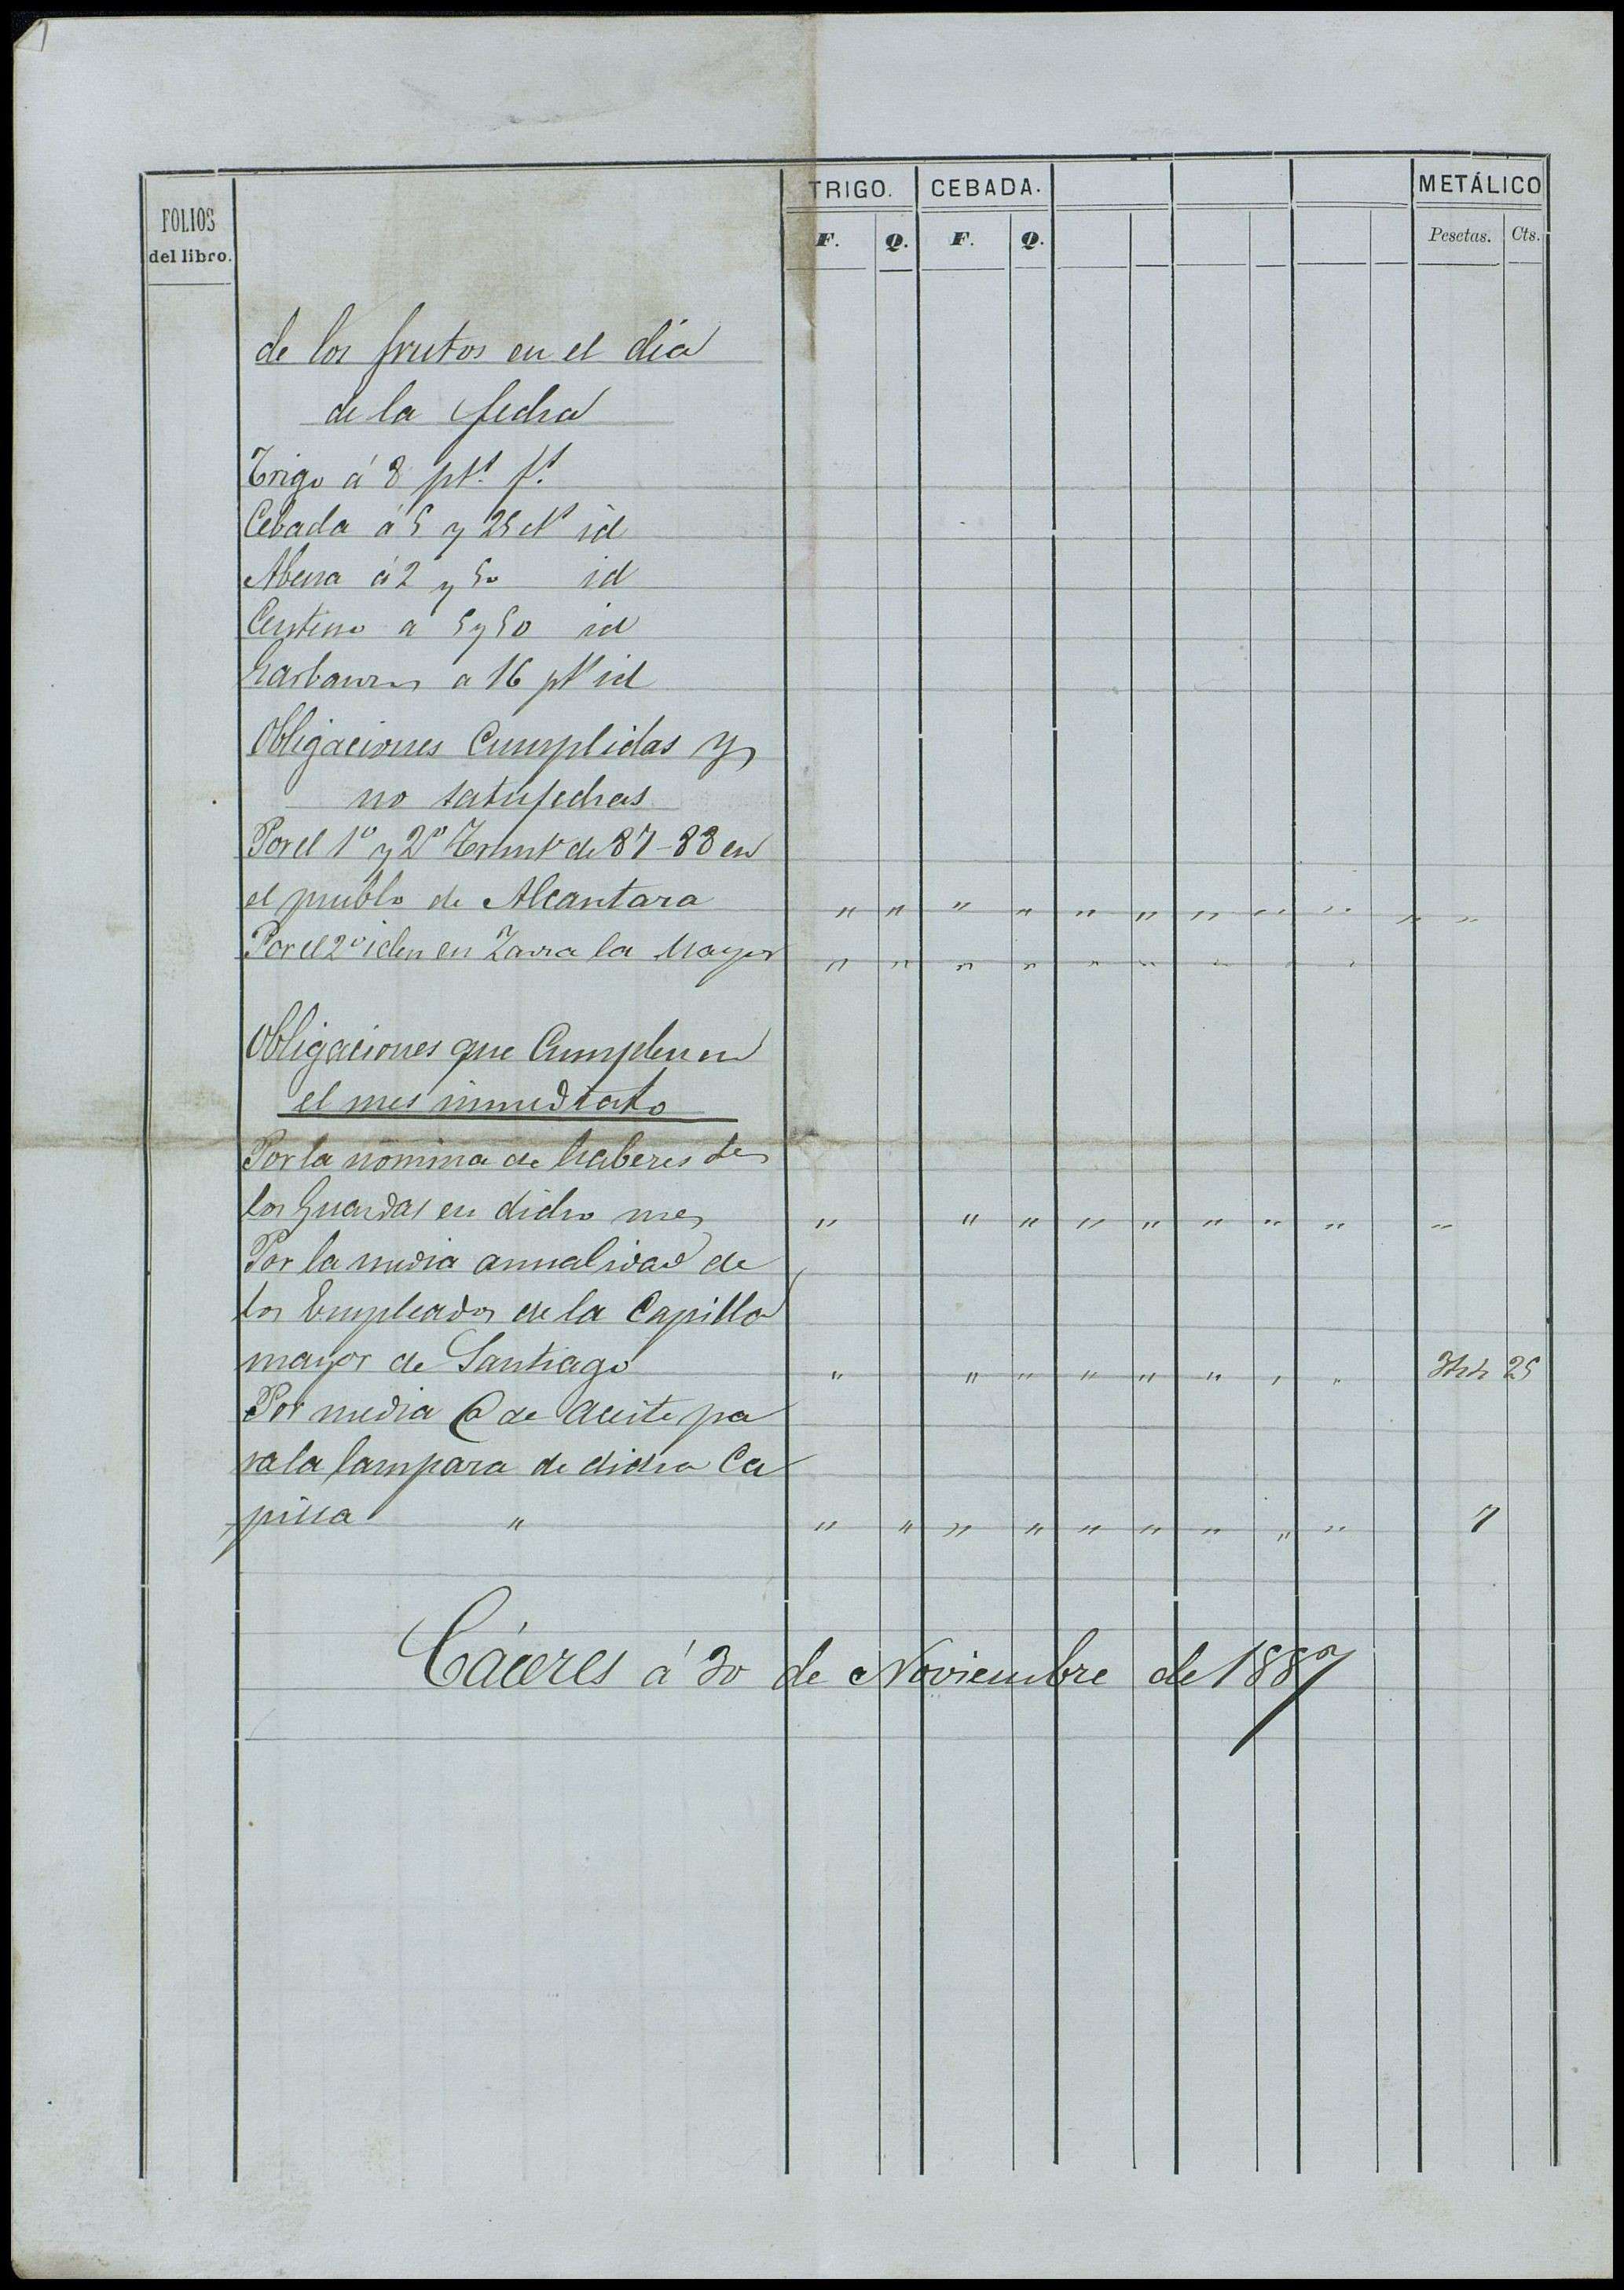 TRIGO. CEBADA. METÁLICO
FOLIOS
del libro.
F. Q. F. Q. Pesetas. Cts.
de los frutos en el dia
de la fecha
Trigo á 8 pts. fs.
Cebada á 5 y 25 cts id
Abena á 2 y 50 id
Centeno a 5 y 50 id
Garbanzos a 16 pts id
Obligaciones Cumplidas y
no satisfechas
Por el 1º y 2º Trimte de 87-88 en
el pueblo de Alcantara " " " " " " " " " " "
Por el 2º iden en Zarza la Mayor " " " " " " " " "
Obligaciones que Cumplen en
el mes inmediato
Por la nómina de haberes de
los Guardas en dicho mes " " " " " " " " "
Por la media anualidad de
los Empleados de la Capilla
mayor de Santiago " " " " " " " " 25
Por media @ de aceite pa
ra la lampara de dicha Ca
pilla " " " " " " " " " " 7
Cáceres á 30 de Noviembre de 1887